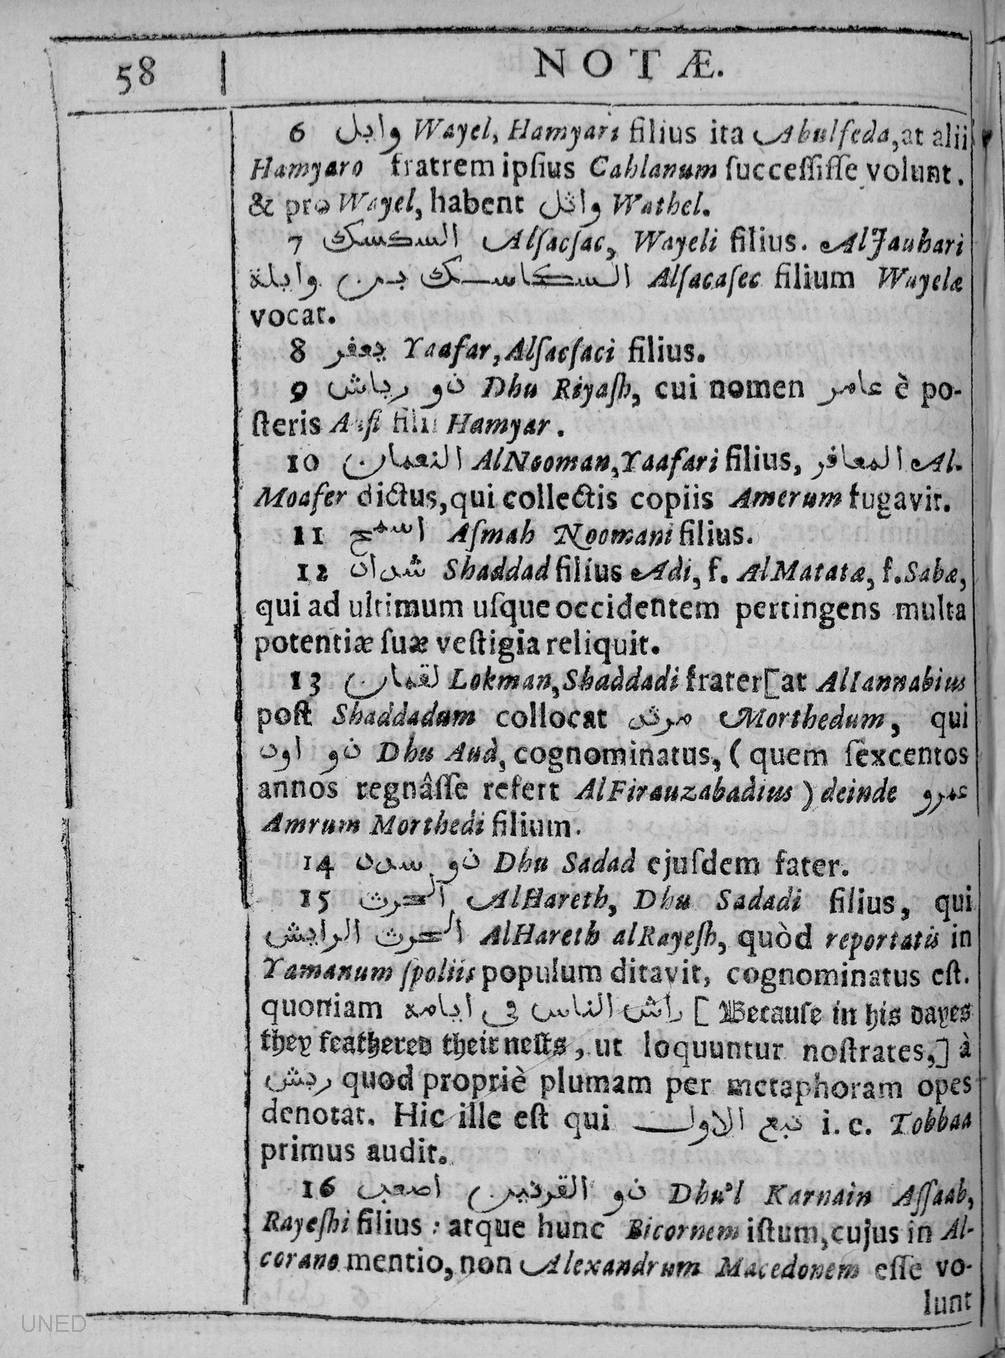 58 NOTÆ.
6 وايل Wayel, Hamyari filius ita Abulfeda, at alii
Hamyaro fratrem ipſius Cahlanum ſucceſſiſſe volunt.
& pro Wayel, habent واثل Wathel.
7 السكسك Alſacſac, Wayeli filius. AlJauhari
السكاسك بن وايلة Alſacaſec filium Wayelæ
vocat.
8 يعفر Yaafar, Alſacſaci filius.
9 ذو رياش Dhu Riyaſh, cui nomen عامر è po-
ſteris Aufi filii Hamyar.
10 النعمان AlNooman, Yaafari filius, المعافر Al-
Moafer dictus, qui collectis copiis Amerum fugavit.
11 اسمح Aſmah Noomani filius.
12 شداد Shaddad filius Adi, f. AlMatatæ, f. Sabæ,
qui ad ultimum uſque occidentem pertingens multa
potentiæ ſuæ veſtigia reliquit.
13 لقمان Lokman, Shaddadi frater [at AlIannabius
poſt Shaddadum collocat مرثد Morthedum, qui
ذو اود Dhu Aud, cognominatus, (quem ſexcentos
annos regnâſſe refert AlFirauzabadius) deinde عمرو
Amrum Morthedi filium.
14 ذو سدد Dhu Sadad ejuſdem fater.
15 الحرث AlHareth, Dhu Sadadi filius, qui
الحرث الرايش AlHareth alRayeſh, quòd reportatis in
Yamanum ſpoliis populum ditavit, cognominatus eſt.
quoniam راش الناس في ايامه [Becauſe in his dayes
they feathered their neſts, ut loquuntur noſtrates,] à
ريش quod propriè plumam per metaphoram opes
denotat. Hic ille eſt qui تبع الاول i. e. Tobbaa
primus audit.
16 ذو القرنين اصعب Dhu'l Karnain Aſſaab,
Rayeſhi filius: atque hunc Bicornem iſtum, cujus in Al-
corano mentio, non Alexandrum Macedonem eſſe vo-
lunt
UNED